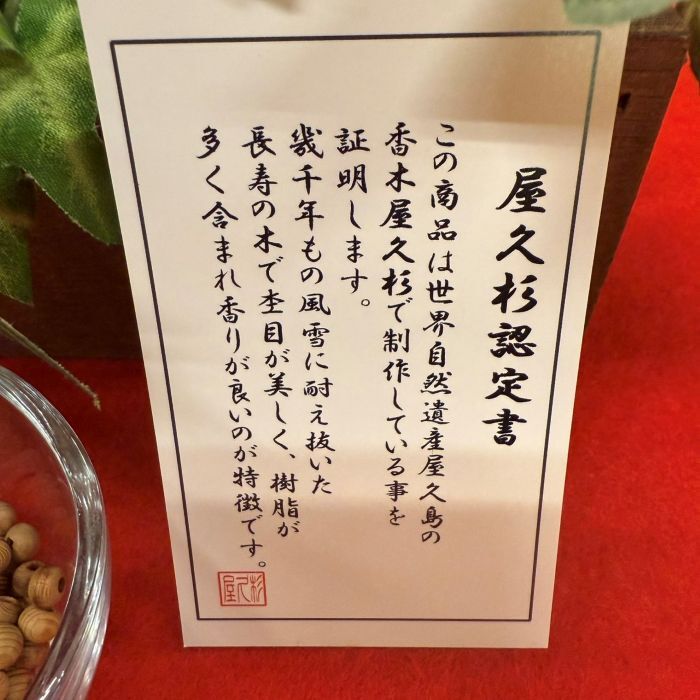 屋久杉認定書
この商品は世界自然遺産屋久島の
香木屋久杉で制作している事を
証明します。
幾千年もの風雪に耐え抜いた
長寿の木で杢目が美しく、樹脂が
多く含まれ香りが良いのが特徴です。
屋久杉